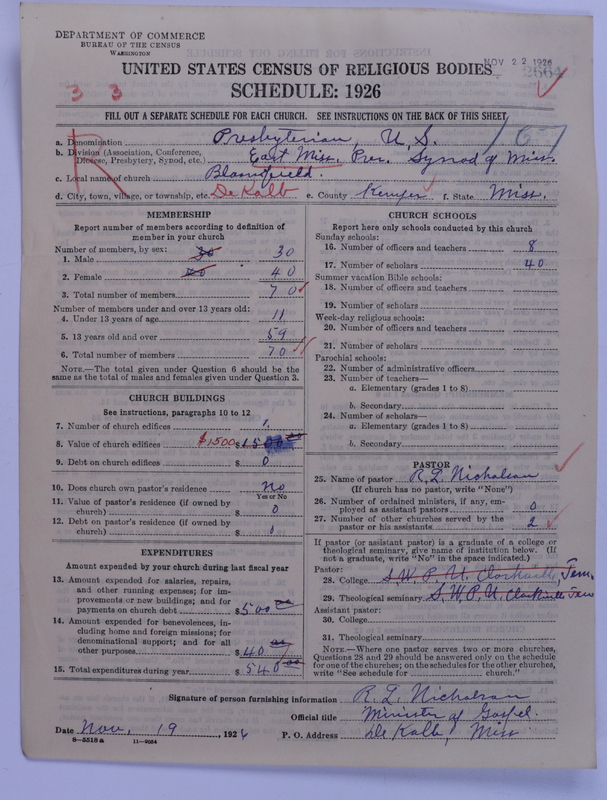 DEPARTMENT OF COMMERCE
BUREAU OF THE CENSUS
WASHINGTON
NOV 22 1926
UNITED STATES CENSUS OF RELIGIOUS BODIES
3 3
SCHEDULE: 1926
FILL OUT A SEPARATE SCHEDULE FOR EACH CHURCH. SEE INSTRUCTIONS ON THE BACK OF THIS SHEET
R
a. Denomination Presbyterian, U. S.
b. Division (Association, Conference, Diocese, Presbytery, Synod, etc.) East Miss. Pres. Synod of Miss.
c. Local name of church
d. City, town, village, or township, etc. De Kalb e. County Kemper f. State Miss.
MEMBERSHIP
Report number of members according to definition of
member in your church
Number of members, by sex:
1. Male 30 30
2. Female 40 40
3. Total number of members 70
Number of members under and over 13 years old:
4. Under 13 years of age 11
5. 13 years old and over 59
6. Total number of members 70
NOTE.—The total given under Question 6 should be the
same as the total of males and females given under Question 3.
CHURCH BUILDINGS
See instructions, paragraphs 10 to 12
7. Number of church edifices 1
8. Value of church edifices $1500 $ 1500
9. Debt on church edifices $ 0
10. Does church own pastor's residence No
Yes or No
11. Value of pastor's residence (if owned by
church) $ 0
12. Debt on pastor's residence (if owned by
church) $
EXPENDITURES
Amount expended by your church during last fiscal year
13. Amount expended for salaries, repairs,
and other running expenses; for im-
provements or new buildings; and for
payments on church debt $ 500 00
14. Amount expended for benevolences, in-
cluding home and foreign missions; for
denominational support; and for all
other purposes $ 40 00
15. Total expenditures during year $ 540 00
CHURCH SCHOOLS
Report here only schools conducted by this church
Sunday schools:
16. Number of officers and teachers 8
17. Number of scholars 40
Summer vacation Bible schools:
18. Number of officers and teachers
19. Number of scholars
Week-day religious schools:
20. Number of officers and teachers
21. Number of scholars
Parochial schools:
22. Number of administrative officers
23. Number of teachers—
a. Elementary (grades 1 to 8)
b. Secondary
24. Number of scholars—
a. Elementary (grades 1 to 8)
b. Secondary
PASTOR
25. Name of pastor R. L. Nicholson
(If church has no pastor, write "None")
26. Number of ordained ministers, if any, em-
ployed as assistant pastors 0
27. Number of other churches served by the
pastor or his assistants 2
If pastor (or assistant pastor) is a graduate of a college or
theological seminary, give name of institution below. (If
not a graduate, write "No" in the space indicated.)
Pastor:
28. College S. W. P. U. Clarksville, Tenn.
29. Theological seminary S. W. P. U. Clarksville Tenn
Assistant pastor:
30. College
31. Theological seminary
NOTE.—Where one pastor serves two or more churches,
Questions 28 and 29 should be answered only on the schedule
for one of the churches; on the schedules for the other churches,
write "See schedule for church."
Signature of person furnishing information R. L. Nicholson
Official title Minister of Gospel.
Date Nov. 19, 1926 P. O. Address De Kalb, Miss
8—5518a 11—9034